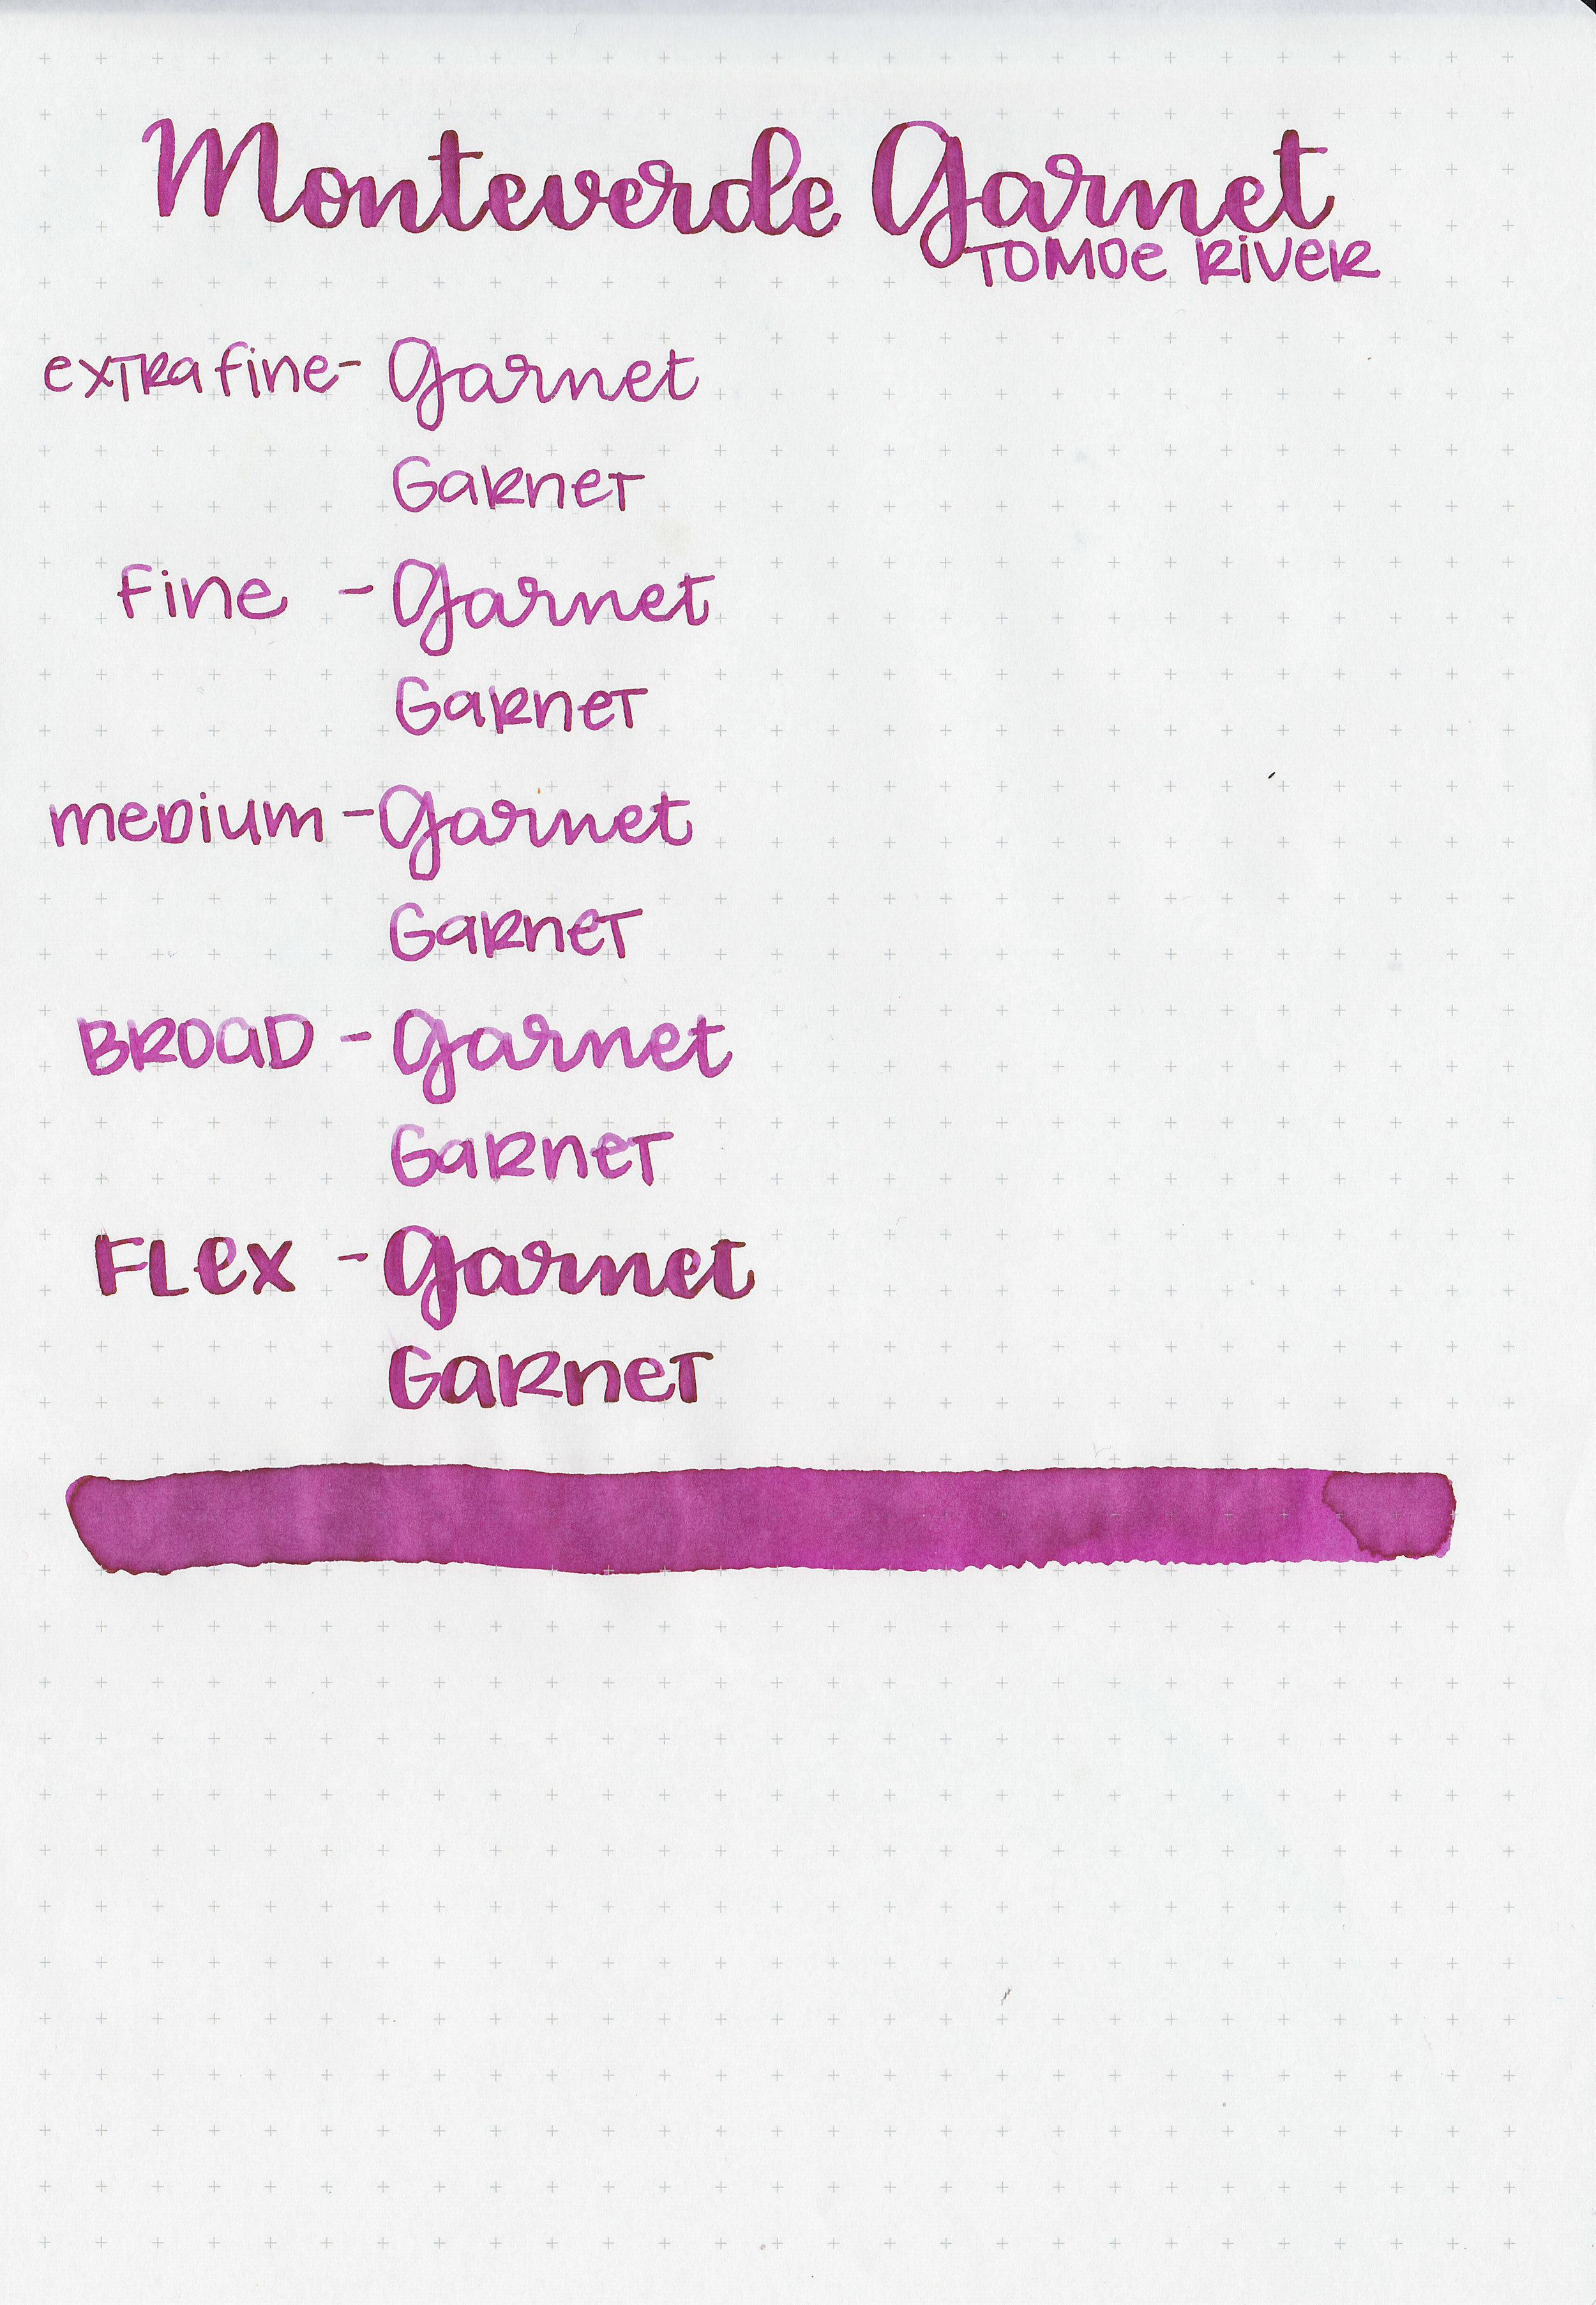 Monteverde Garnet
TOMOe RiVeR
exTRa fine- Garnet
GaRneT
Fine - Garnet
GaRneT
meDium - Garnet
GaRneT
BROaD - Garnet
GaRneT
FLex - Garnet
GaRneT